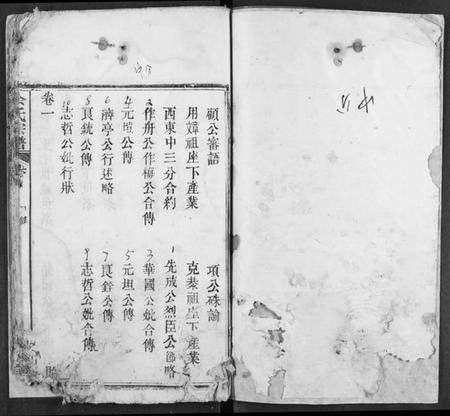 顧公審語
項公硃諭
用嫜祖座下產業
克蓁祖座下產業
西東中三分合約
1 先成公烈臣公節略
2 作舟公作梅公合傳
3 華國公妣合傳
4 元愷公傳
5 元坦公傳
6 濟亭公行述略
7 良銓公傳
8 良銃公傳
9 志哲公妣合傳
10 志哲公妣行狀
卷一
氏宗譜